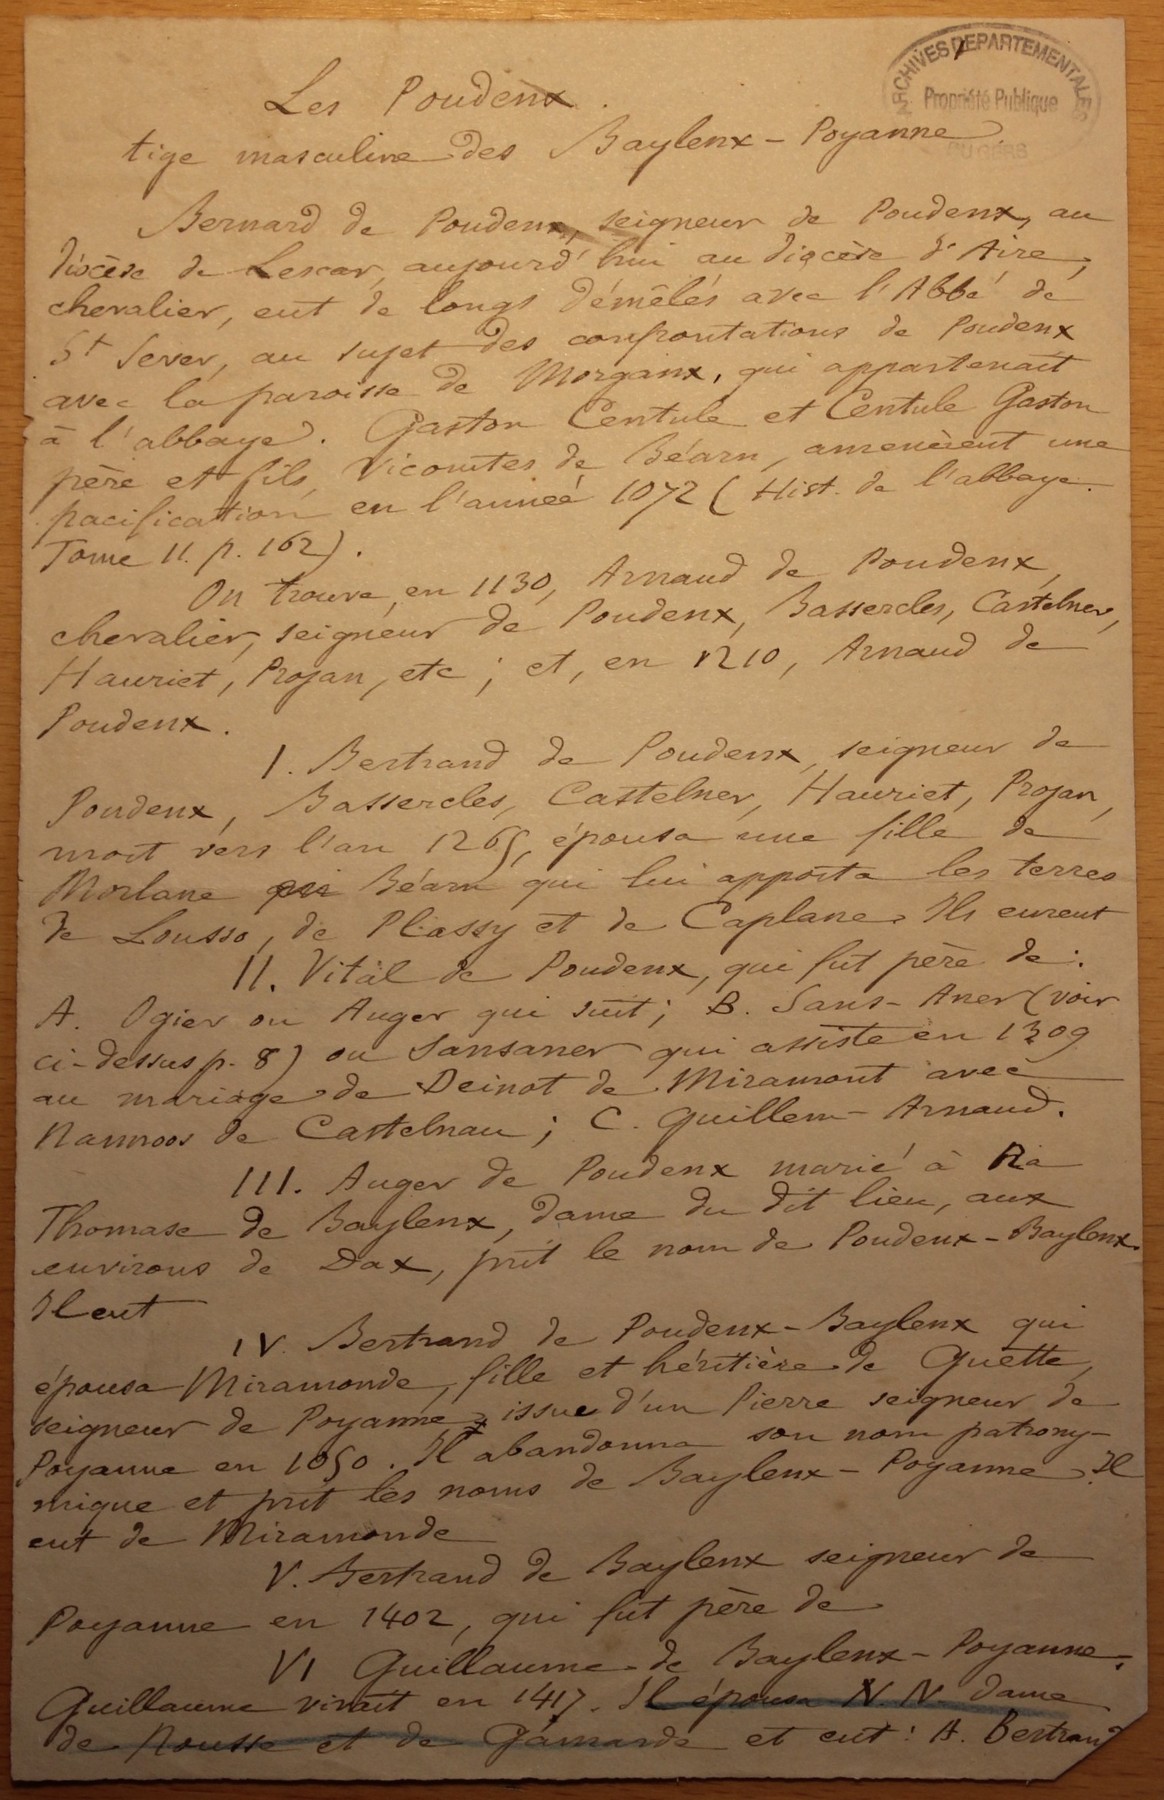 ARCHIVES DEPARTEMENTALES
Propriété Publique
DU GERS
Les Poudenx.
tige masculine des Baylenx - Poyanne
Bernard de Poudenx, seigneur de Poudenx, au
diocèse de Lescar, aujourd'hui au diocèse d'Aire,
chevalier, eut de longs démêlés avec l'Abbé de
St Sever, au sujet des confrontations de Poudenx
avec la paroisse de Morganx, qui appartenait
à l'abbaye. Gaston Centule et Centule Gaston
père et fils, Vicomtes de Béarn, amenèrent une
pacification en l'année 1072 (Hist. de l'abbaye.
Tome II. p. 162).
On trouve, en 1130, Arnaud de Poudenx,
chevalier, seigneur de Poudenx, Bassercles, Castelner,
Hauriet, Projan, etc ; et, en 1210, Arnaud de
Poudenx.
I. Bertrand de Poudenx, seigneur de
Poudenx, Bassercles, Castelner, Hauriet, Projan,
mort vers l'an 1265, épousa une fille de
Morlane Béarn qui lui apporta les terres
de Lousso, de Plassy et de Caplane. Ils eurent
II. Vital de Poudenx, qui fut père de :
A. Ogier ou Auger qui suit ; B. Sans-Aner (voir
ci-dessus p. 8) ou Sansaner qui assiste en 1309
au mariage de Deinot de Miramont avec
Namoos de Castelnau ; C. Guillem-Arnaud.
III. Auger de Poudenx marié à Na
Thomase de Baylenx, dame du dit lieu, aux
environs de Dax, prit le nom de Poudenx-Baylenx.
Il eut
IV. Bertrand de Poudenx-Baylenx qui
épousa Miramonde, fille et héritière de Guette,
seigneur de Poyanne, issue d'un Pierre seigneur de
Poyanne en 1050. Il abandonna son nom patrony-
mique et prit les noms de Baylenx-Poyanne. Il
eut de Miramonde
V. Bertrand de Baylenx seigneur de
Poyanne en 1402, qui fut père de
VI Guillaume de Baylenx-Poyanne.
Guillaume vivait en 1417. Il épousa N. N. dame
de Nousse et de Gamarde et eut : A. Bertrand